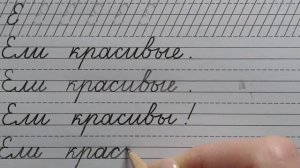 Е
Ели красивые.
Ели красивые.
Ели красивы!
Ели крас